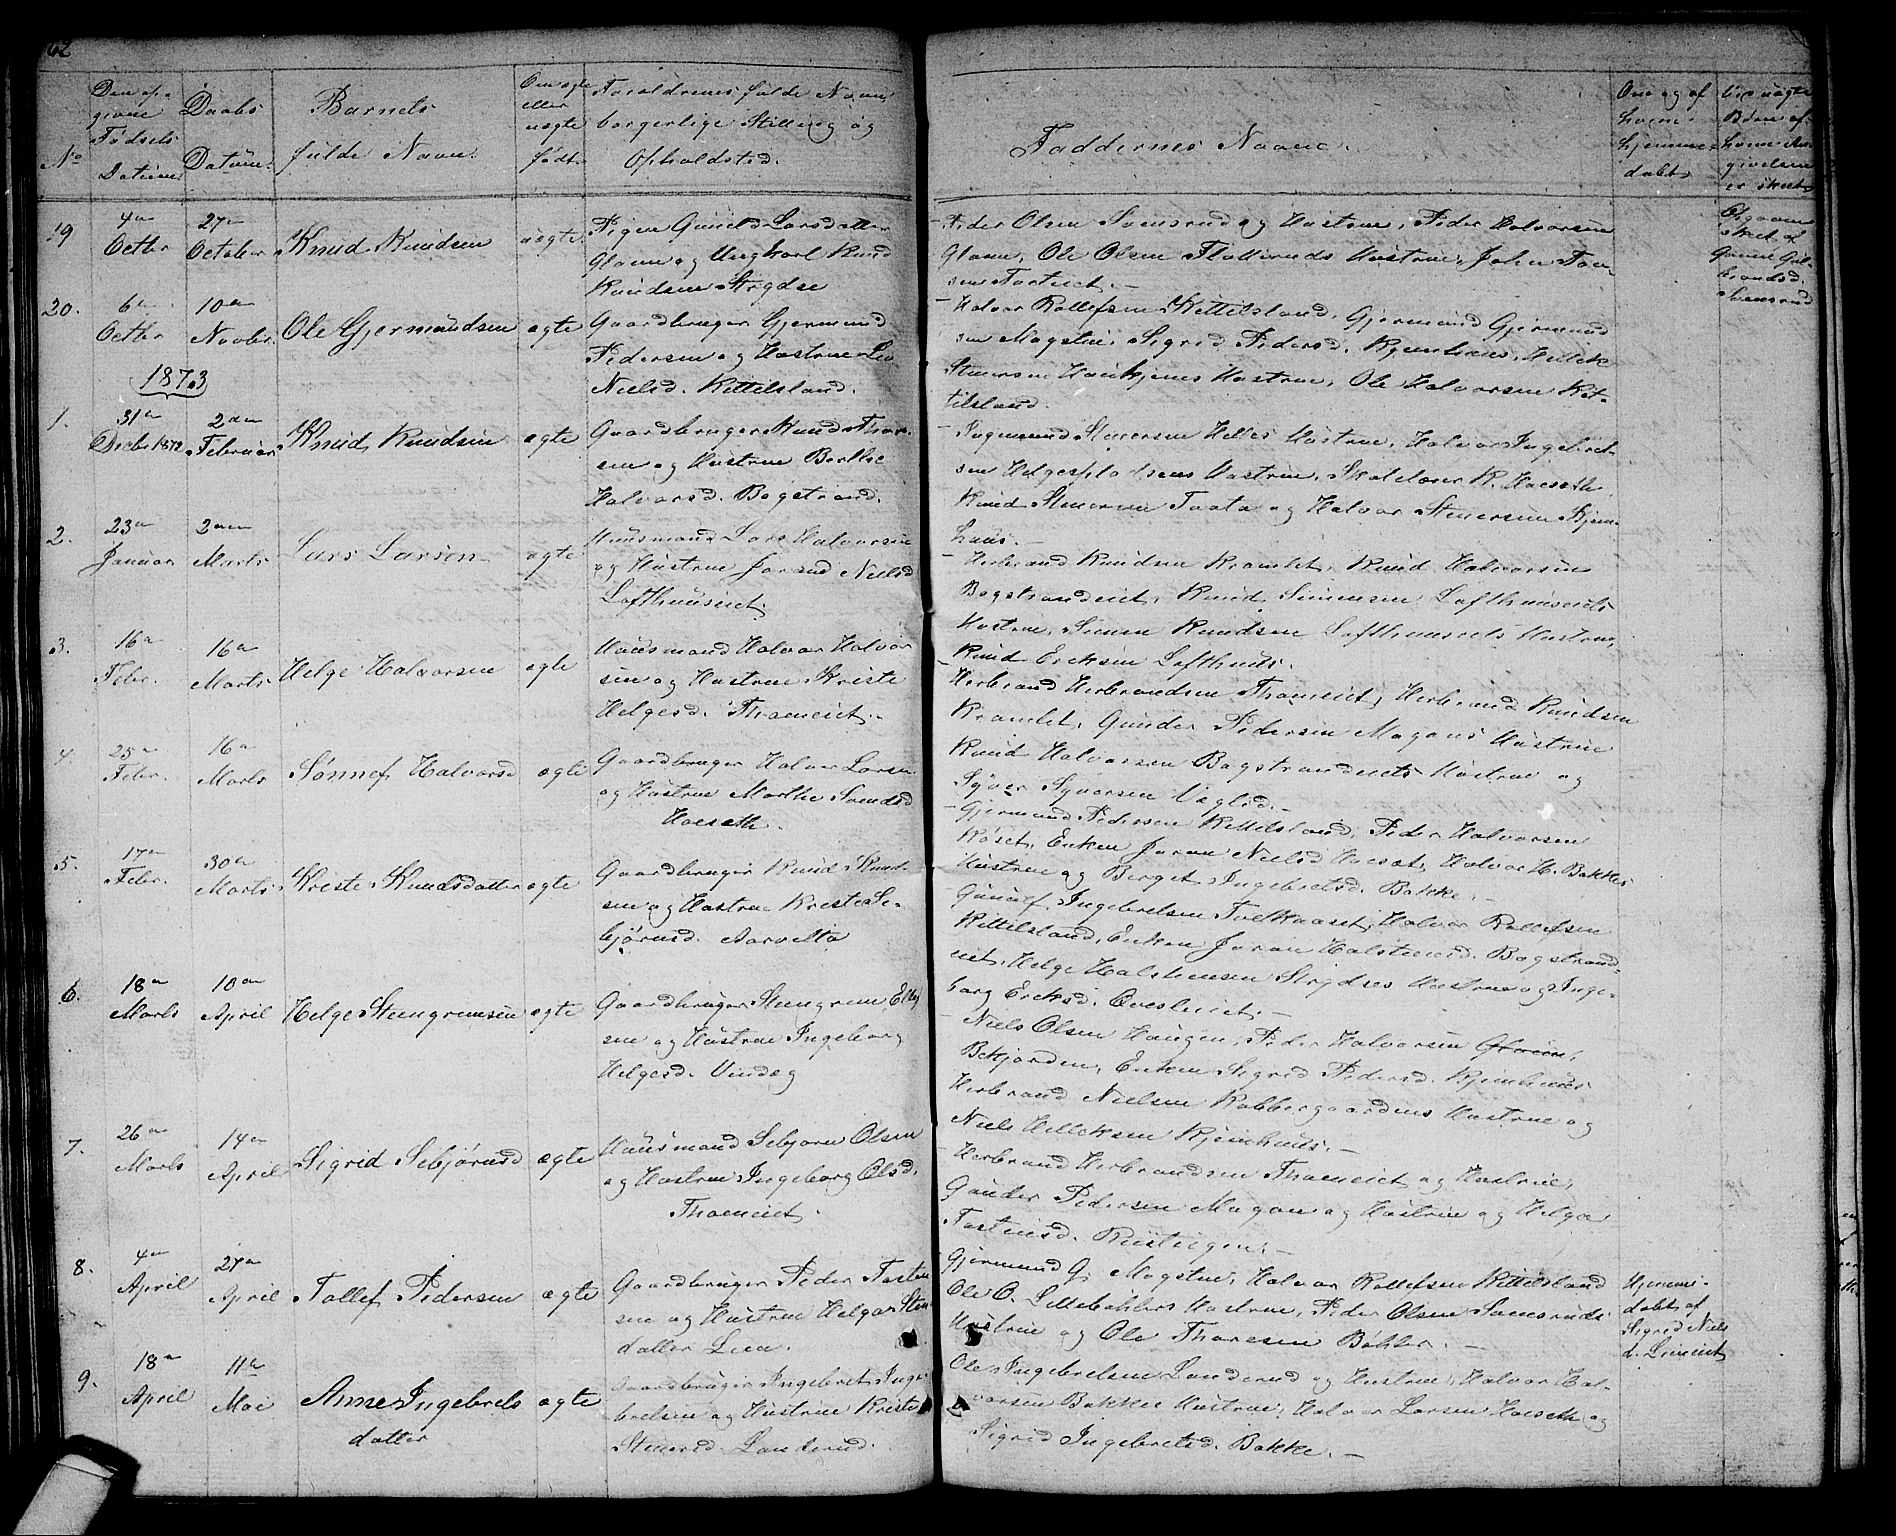 62
No
Den op-
givne
Fødsels
Datum
Daabs
Datum.
Barnets
fulde Navn.
Om ægte
eller
uægte
født.
Foraldrenes fulde Navn,
borgerlige Stilling og
Opholdsted.
Faddernes Navne.
Om og af
hvem
hjemme-
døbt
Ved uægte
Børn af
hvem An-
givelsen
er skeet
19
4de
Octbr
27de
October
Knud Knudsen
uægte
Pigen Gunild Larsdatter
Glaim og Ungkarl Knud
Knudsen Strydse
Peder Olsen Svensrud og Hustrue, Peder Halvorsen
Glaim, Ole Olsen Flatteruds Hustrue, John Tov-
sen Torteiet.
20.
6te
Octbr
10de
Novbr.
Ole Gjermundsen
ægte
Gaardbruger Gjermund
Pedersen og Hustrue Liv
Nielsd. Kittelsland.
Halvor Rollefsen Kittelsland, Gjermund Gjermund
sen Magstui, Sigrid Pedersd. Kjemhuus, Hellek
Steensen Haukjems Hustrue, Ole Halvorsen Kit-
telsland.
1873
1.
31te
Decbr 1872
2den
Februar
Knud Knudsen
ægte
Gaardbruger Knud Thor-
sen og Hustrue Berthe
Halvorsd. Bogstrand.
Ingemund Stenersen Helles Hustrue, Halvor Ingebret-
sen Helgespladsens Hustrue, Skolelærer K. Hoeseth
Knud Stenersen Taata og Halvor Stenersen Kjem-
huus.
2.
23de
Januar
2den
Marts
Lars Larsen
ægte
Huusmand Lars Halvorsen
og Hustrue Jorand Nielsd
Lofthuuseiet.
Herbrand Knudsen Kramlet, Knud Halvorsen
Bogstrandeiet, Knud Simensen Lofthuuseiets
Hustrue, Simen Knudsen Lofthuuseiets Hustrue,
Knud Ericksen Lofthuus.
3.
16de
Febr.
16de
Marts
Helge Halvorsen
ægte
Huusmand Halvor Halvor
sen og Hustrue Kriste
Helgesd. Thoeneiet.
Herbrand Herbrandsen Thoeneiet, Herbrand Knudsen
Kramlet, Gunder Pedersen Magans Hustrue
Knud Halvorsen Bogstrandeiets Hustrue og
Syver Syversen Veglid.
4
25de
Febr.
16de
Marts
Sønnef Halvorsd
ægte
Gaardbruger Halvor Larsen
og Hustrue Marthe Svendsd
Hoeseth.
Gjermund Pedersen Kittelsland, Peder Halvorsen
Røset, Enken Joran Nielsd Hoeset, Halvor H. Bakkes
Hustrue og Berget Ingebretsd. Bakke.
5.
17de
Febr.
30de
Marts
Kriste Knudsdatter
ægte
Gaardbruger Knud Knud-
sen og Hustrue Kriste Se-
bjørnsd. Aarvelta
Gunulf Ingebretsen Tvetkaaset, Halvor Rollefsen
Kittelsland, Enken Joran Halstensd. Bogstrand-
eiet, Helge Halstensen Strydses Hustrue og Inge-
borg Ericksd. Evesleiet.
6.
18de
Marts
10de
April
Helge Steengrimsen
ægte
Gaardbruger Steengrim
sen og Hustrue Ingeborg
Helgesd. Vindeg
Niels Olsen Haugen, Peder Halvorsen Glaim,
Bekjorden, Enken Sigrid Pedersd. Kjemhuus
Herbrand Nielsen Kobbergaardens Hustrue og
Niels Helleksen Kjemhuus.
7.
26de
Marts
14de
April
Sigrid Sebjørnsd
ægte
Huusmand Sebjørn Olsen
og Hustrue Ingeborg Olsd.
Thoeneiet.
Herbrand Herbrandsen Thoeneiet og Hustrue,
Gunder Pedersen Magan og Hustrue og Helga
Torsteinsd. Rusteigen.
8.
4de
April
27de
April
Tollef Pedersen
ægte
Gaardbruger Peder Tosten
sen og Hustrue Helga Sten
datter Lien.
Gjermund G. Magstui, Halvor Rollefsen Kittelsland
Ole O. Lillebøhlers Hustrue, Peder Olsen Svensruds
Hustrue og Ole Thoresen Bøhler.
Hjemme-
døbt af
Sigrid Niels
d. Lieneiet
9.
18de
April
11te
Mai
Anne Ingebrets
datter
ægte
Gaardbruger Ingebret Inge-
bretsen og Hustrue Kriste
Stenersd. Landerud.
Ole Ingebretsen Landerud og Hustrue, Halvor Hal-
vorsen Bakkes Hustrue, Halvor Larsen Hoeseth og
Sigrid Ingebretsd. Bakke.